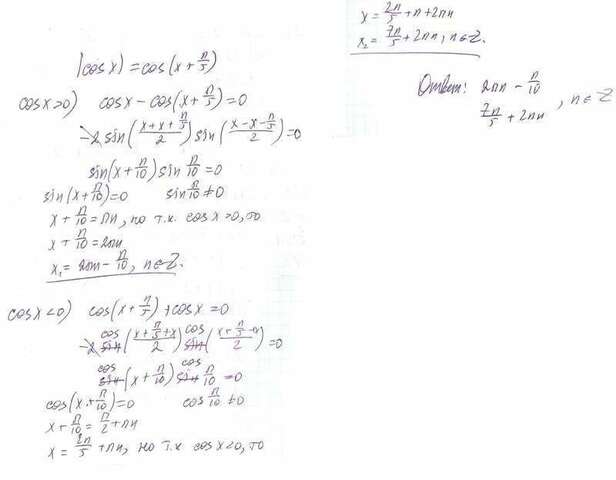 |cos x| = cos(x + π/5)
cos x>0) cos x - cos(x + π/5) = 0
-2 sin((x+x+π/5)/2) sin((x-x-π/5)/2) = 0
sin(x + π/10) sin π/10 = 0
sin(x + π/10) = 0 sin π/10 ≠ 0
x + π/10 = πn, но т.к. cos x > 0, то
x + π/10 = 2πn
x₁ = 2πn - π/10, n∈Z.
cos x<0) cos(x + π/5) + cos x = 0
-2 cos((x+π/5+x)/2) cos((x+π/5-x)/2) = 0
cos(x + π/10) cos π/10 = 0
cos(x + π/10) = 0 cos π/10 ≠ 0
x + π/10 = π/2 + πn
x = 2π/5 + πn, но т.к. cos x < 0, то
x = 2π/5 + π + 2πn
x₂ = 7π/5 + 2πn, n∈Z.
Ответ: 2πn - π/10
7π/5 + 2πn , n∈Z